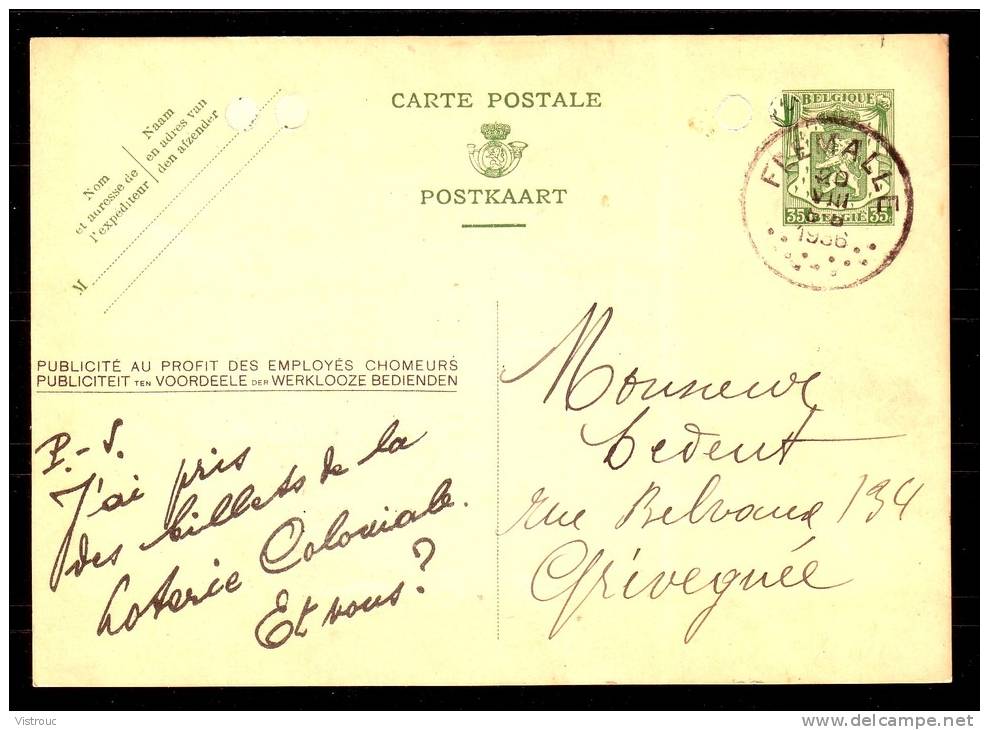 CARTE POSTALE
POSTKAART
Nom
et adresse de
l'expéditeur
Naam
en adres van
den afzender
M
BELGIQUE
35 BELGIË 35
FLEMALLE
VIII
1936
PUBLICITÉ AU PROFIT DES EMPLOYÉS CHOMEURS
PUBLICITEIT TEN VOORDEELE DER WERKLOOZE BEDIENDEN
P.-S.
J'ai pris
des billets de la
Loterie Coloniale.
Et vous?
Monsieur
Dedent
rue Belvaux 134
Grivegnée
Vistrouc
www.delcampe.net